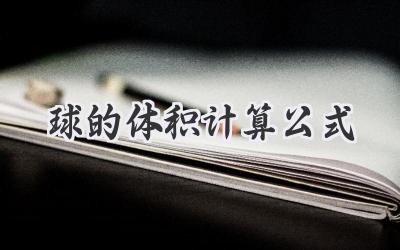 球的体积计算公式